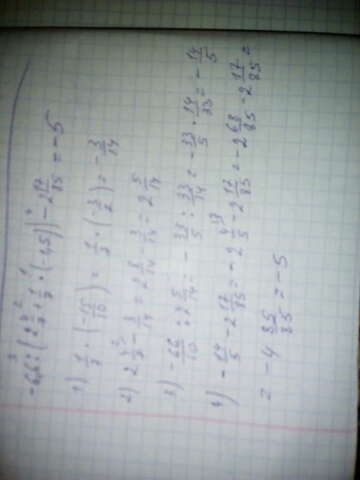 -6,6 : (2 4/7 + 1/7 · (-1,5)) - 2 17/85 = -5
1) 1/7 · (-15/10) = 1/7 · (-3/2) = -3/14
2) 2 4/7 - 3/14 = 2 8/14 - 3/14 = 2 5/14
3) -66/10 : 2 5/14 = -33/5 : 33/14 = -33/5 · 14/33 = -14/5
4) -14/5 - 2 17/85 = -2 4/5 - 2 17/85 = -2 68/85 - 2 17/85 =
= -4 85/85 = -5